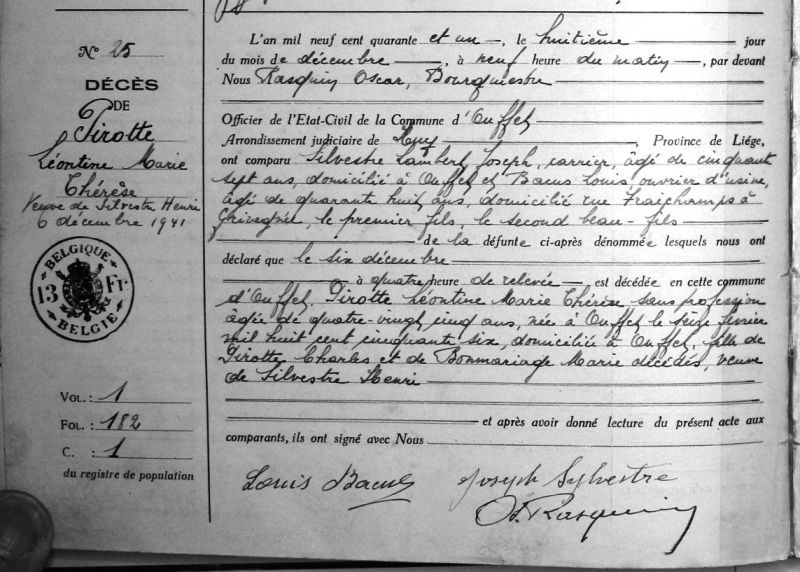 N° 25
DÉCÈS
DE
Pirotte
Léontine Marie
Thérèse
Veuve de Silvestre Henri
6 décembre 1941
BELGIQUE
13 Fr.
BELGIE
VOL. : 1
FOL. : 182
C. : 1
du registre de population
L'an mil neuf cent quarante et un, le huitième jour
du mois de décembre, à neuf heure du matin, par devant
Nous Rasquin Oscar, Bourgmestre
Officier de l'Etat-Civil de la Commune d'Ouffet
Arrondissement judiciaire de Huy, Province de Liége,
ont comparu Silvestre Lambert Joseph, carrier, âgé de cinquante
sept ans, domicilié à Ouffet et Bacus Louis, ouvrier d'usine,
âgé de quarante huit ans, domicilié rue Fraichamps à
Grivegnée, le premier fils, le second beau-fils
de la défunte ci-après dénommée lesquels nous ont
déclaré que le six décembre
à quatre heure de relevée, est décédée en cette commune
d'Ouffet, Pirotte Léontine Marie Thérèse sans profession
âgée de quatre-vingt cinq ans, née à Ouffet le seize février
mil huit cent cinquante six, domiciliée à Ouffet, fille de
Pirotte Charles et de Bonmariage Marie décédés, veuve
de Silvestre Henri
et après avoir donné lecture du présent acte aux
comparants, ils ont signé avec Nous
Louis Bacus Joseph Sylvestre
Os. Rasquin